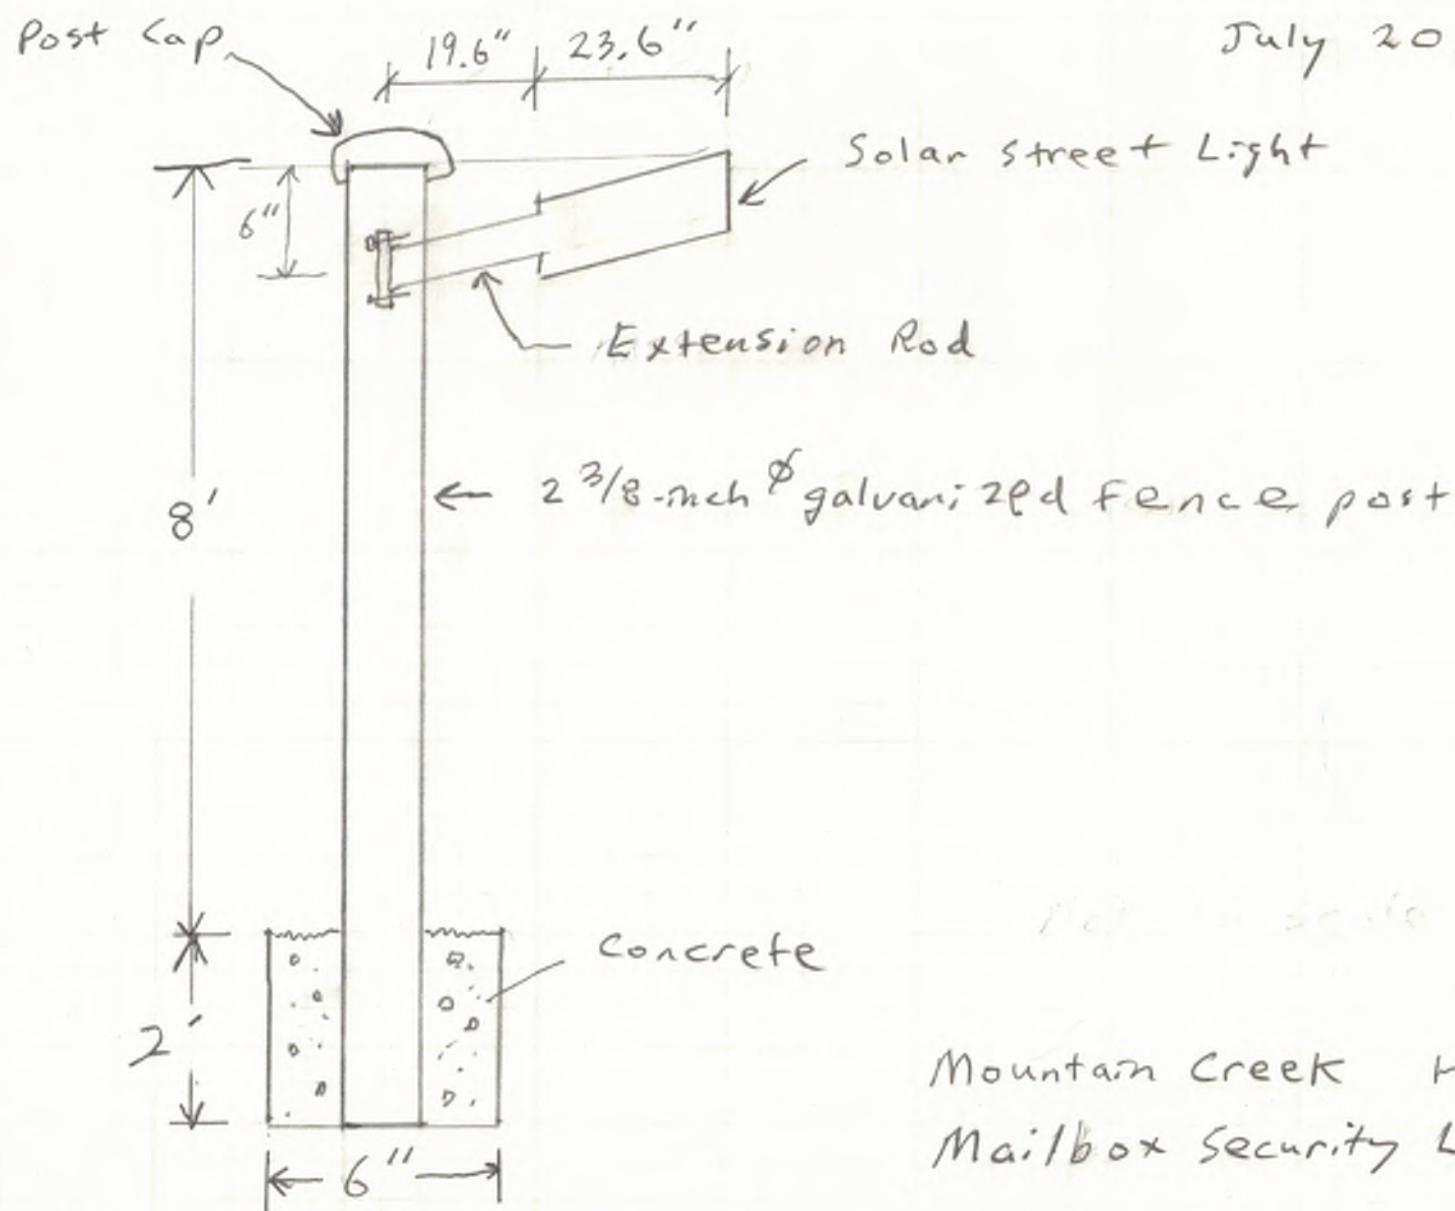 Post Cap
19.6"
23.6"
July 20
Solar Street Light
6"
Extension Rod
2 3/8-inch ø galvanized fence post
8'
scale
Concrete
2'
Mountain Creek H
Mailbox Security L
6"